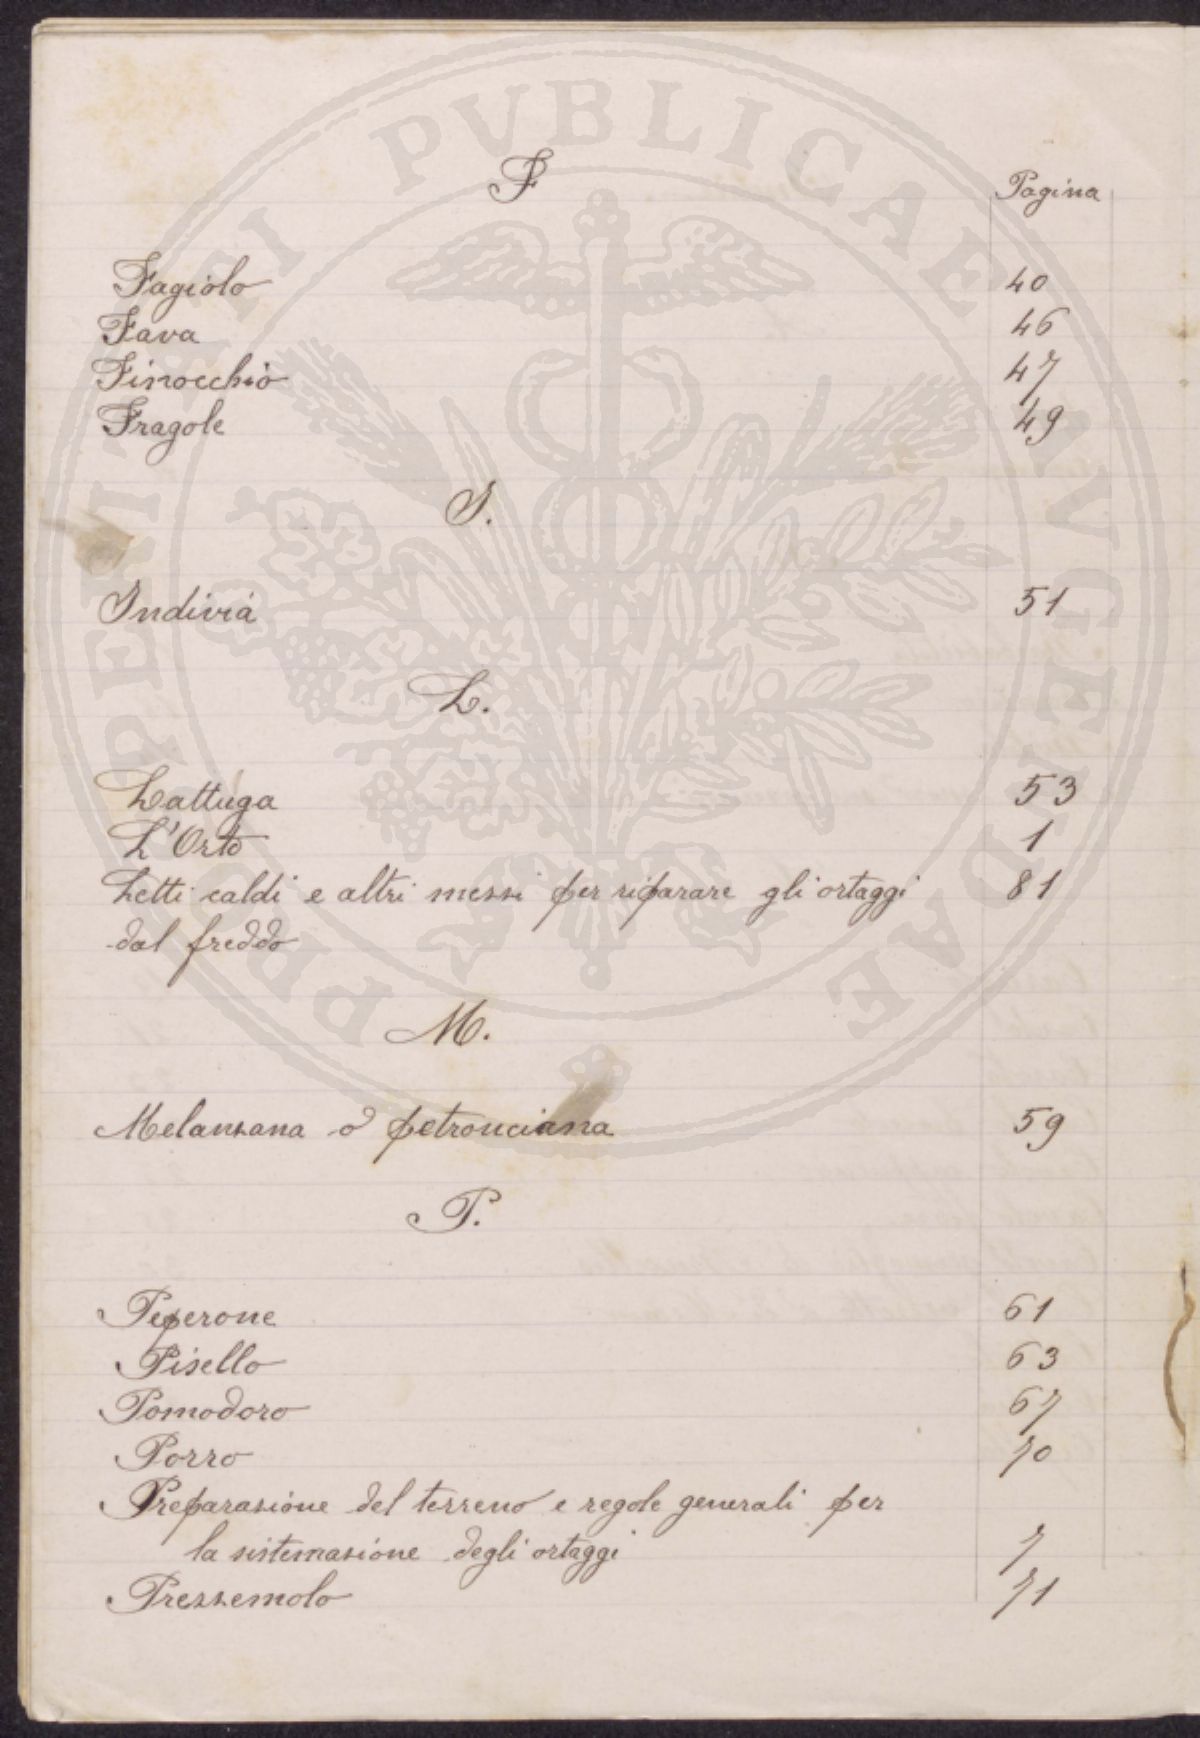 F
Pagina
Fagiolo 40
Fava 46
Finocchio 47
Fragole 49
I.
Indivia 51
L.
Lattuga 53
L'Orto 1
Letti caldi e altri mezzi per riparare gli ortaggi 81
dal freddo
M.
Melanzana o petronciana 59
P.
Peperone 61
Pisello 63
Pomodoro 67
Porro 70
Preparazione del terreno e regole generali per
la sistemazione degli ortaggi 7
Prezzemolo 71
PROSPERITATI PVBLICAE AVGENDAE